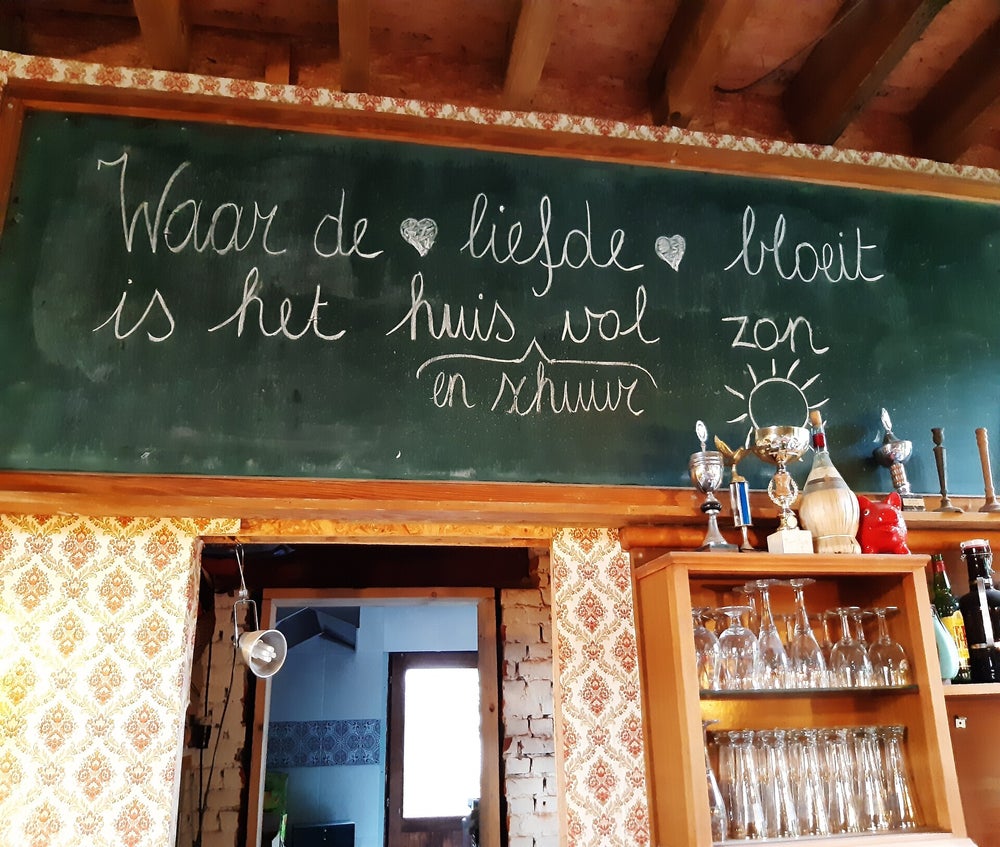 Waar de liefde bloeit
is het huis vol zon
en schuur